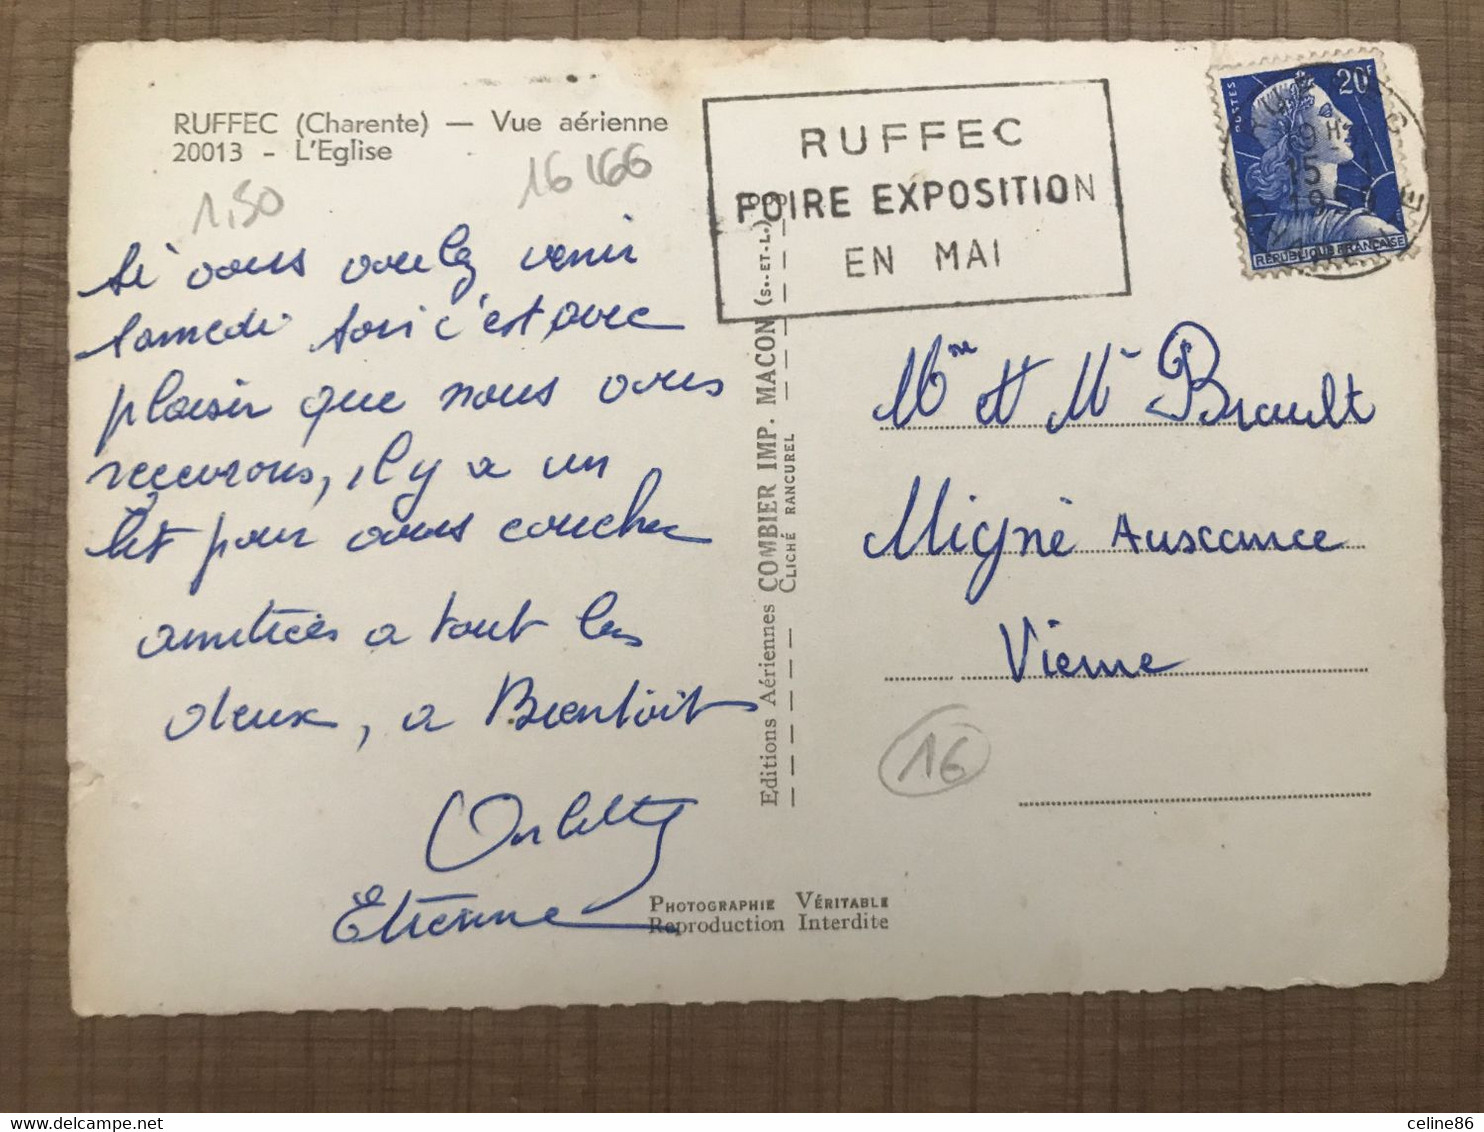 RUFFEC (Charente) — Vue aérienne
20013 - L'Eglise
1,50
16 166
Si vous voulez venir
samedi soir c'est avec
plaisir que nous vous
recevrons, il y a un
lit pour vous coucher
amitiés a tout les
deux, a Bientôt
Etienne
Editions Aériennes COMBIER IMP. MACON (S.-ET-L.)
CLICHÉ RANCUREL
PHOTOGRAPHIE VÉRITABLE
Reproduction Interdite
RUFFEC
FOIRE EXPOSITION
EN MAI
POSTES
20F
REPUBLIQUE FRANÇAISE
Mme et Mr Brault
Migné Auxance
Vienne
16
celine86